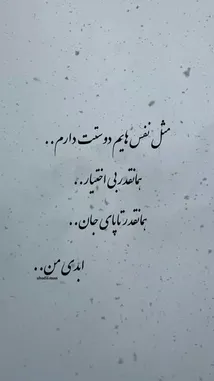 مثل نفس هایم دوستت دارم..
همانقدر بی اختیار..
همانقدر تا پای جان..
ابدی من..